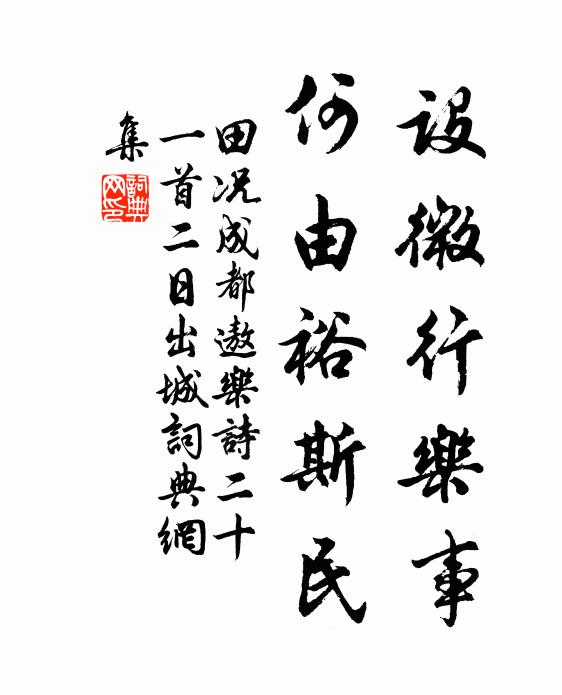 設微行樂事
何由裕斯民
田况成都遨樂詩二十
一首二日出城詞典網
集
詞典
网印